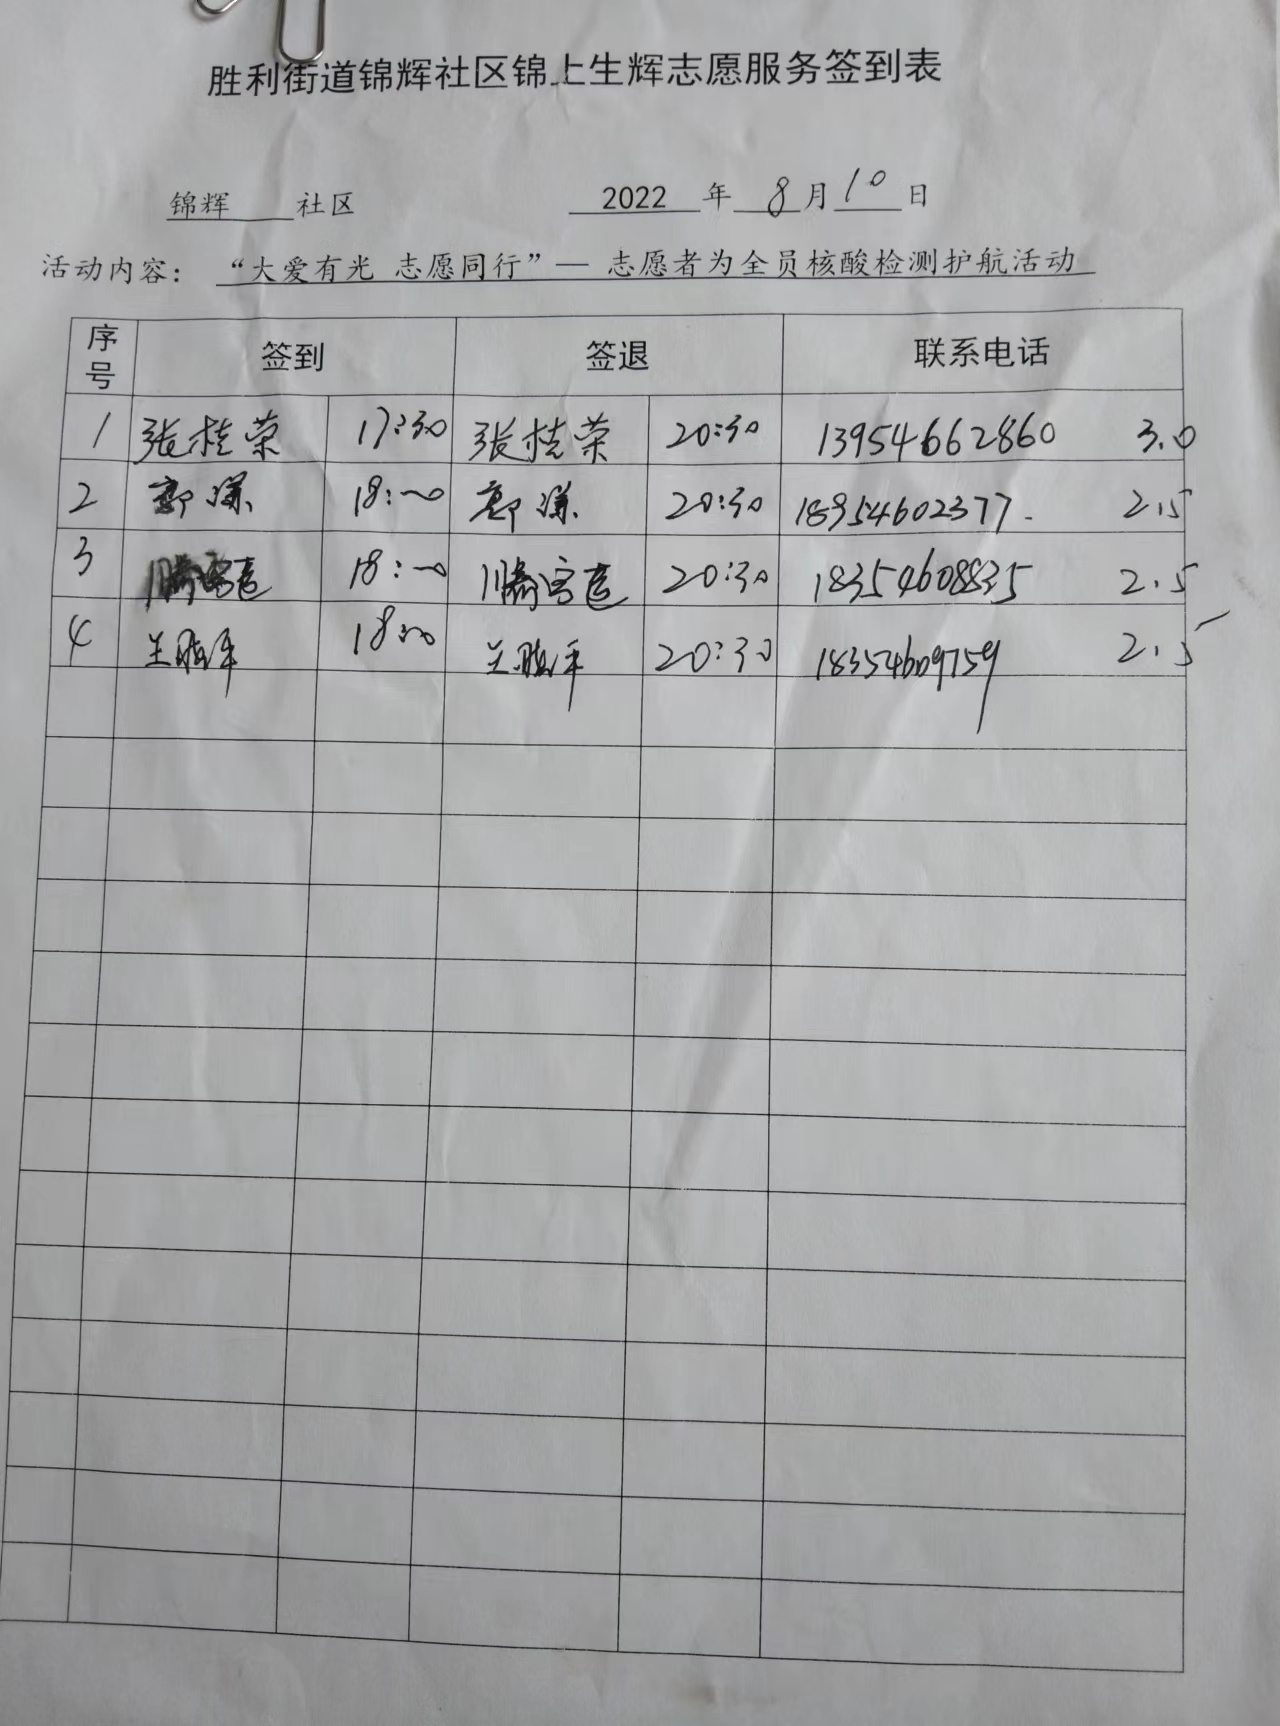 胜利街道锦辉社区锦上生辉志愿服务签到表
锦辉 社区 2022 年 8 月 10 日
活动内容： “大爱有光 志愿同行”— 志愿者为全员核酸检测护航活动
序号 签到 签退 联系电话
1 张桂荣 17:30 张桂荣 20:30 13954662860 3.0
2 18:00 20:30 18954602377. 2.5
3 18:00 20:30 18354608835 2.5
4 18:00 20:30 18354609759 2.5